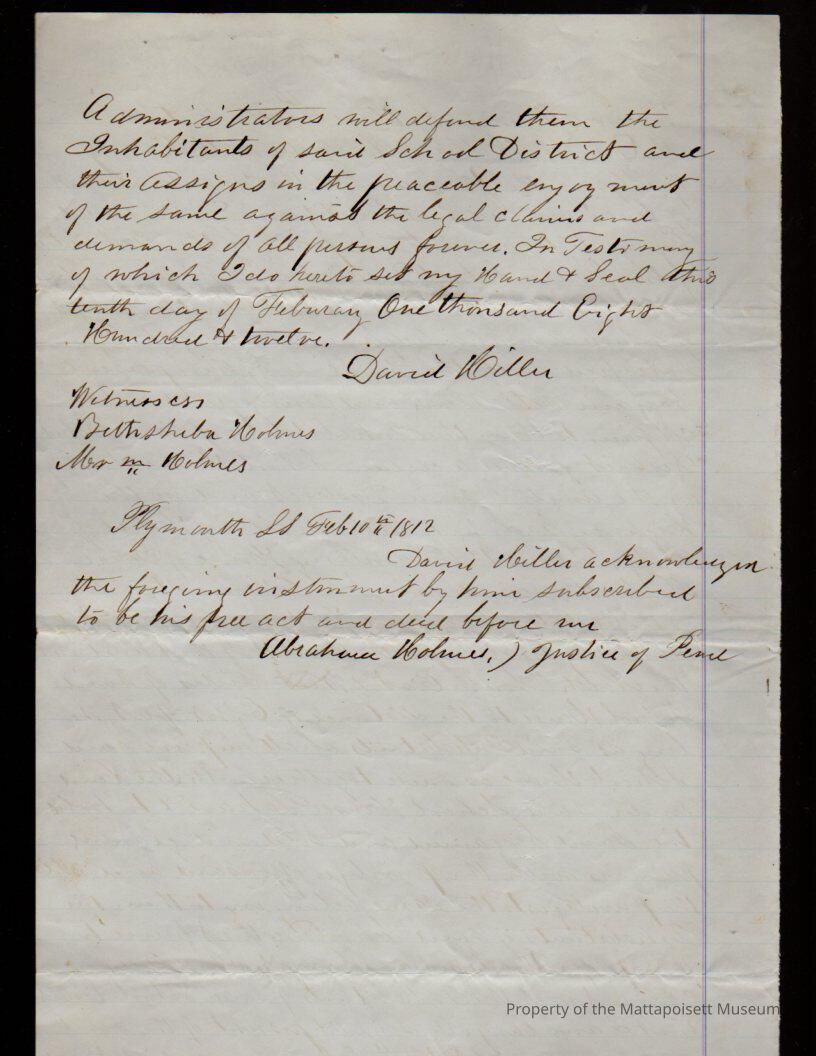 Administrators will defend them the
Inhabitants of said School District and
their assigns in the peaceable enjoyment
of the same against the legal claims and
demands of all persons forever. In Testimony
of which I do hereto set my Hand & Seal this
tenth day of Feburary One thousand Eight
Hundred & twelve.
David Hiller
Witnesses
Bethsheba Holmes
Holmes
Plymouth SS Feb 10th 1812
David Hiller acknowledged
the foregoing instrument by him subscribed
to be his free act and deed before me
Abraham Holmes, ) Justice of Peace
Property of the Mattapoisett Museum